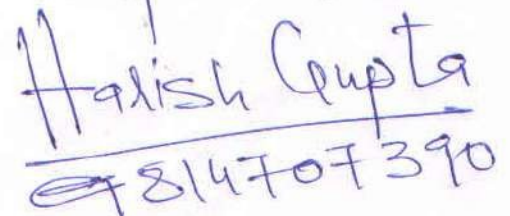 Harish Gupta
9814707390